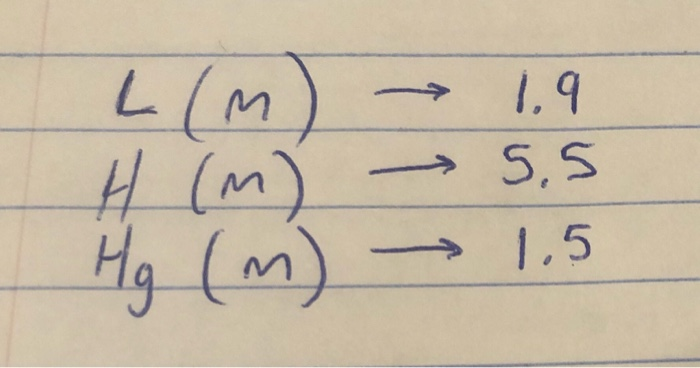 L (m) → 1.9
H (m) → 5.5
Hg (m) → 1.5